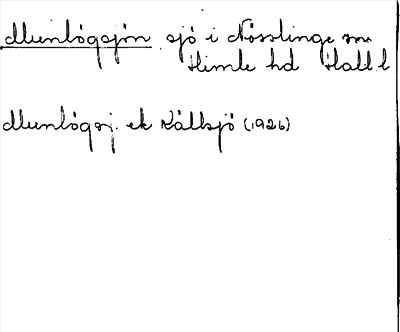 Munlögsjön sjö i Nösslinge sn
Himle hd Hall l
Munlögsj. ek Källsjö (1926)